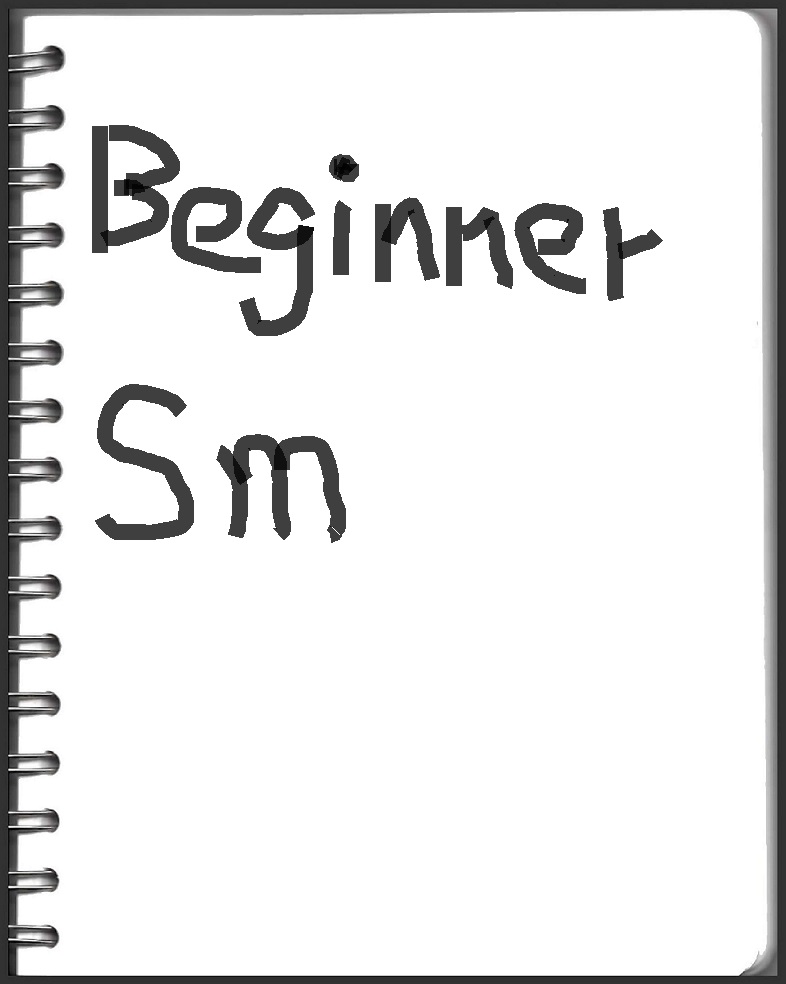 Beginner
Sm